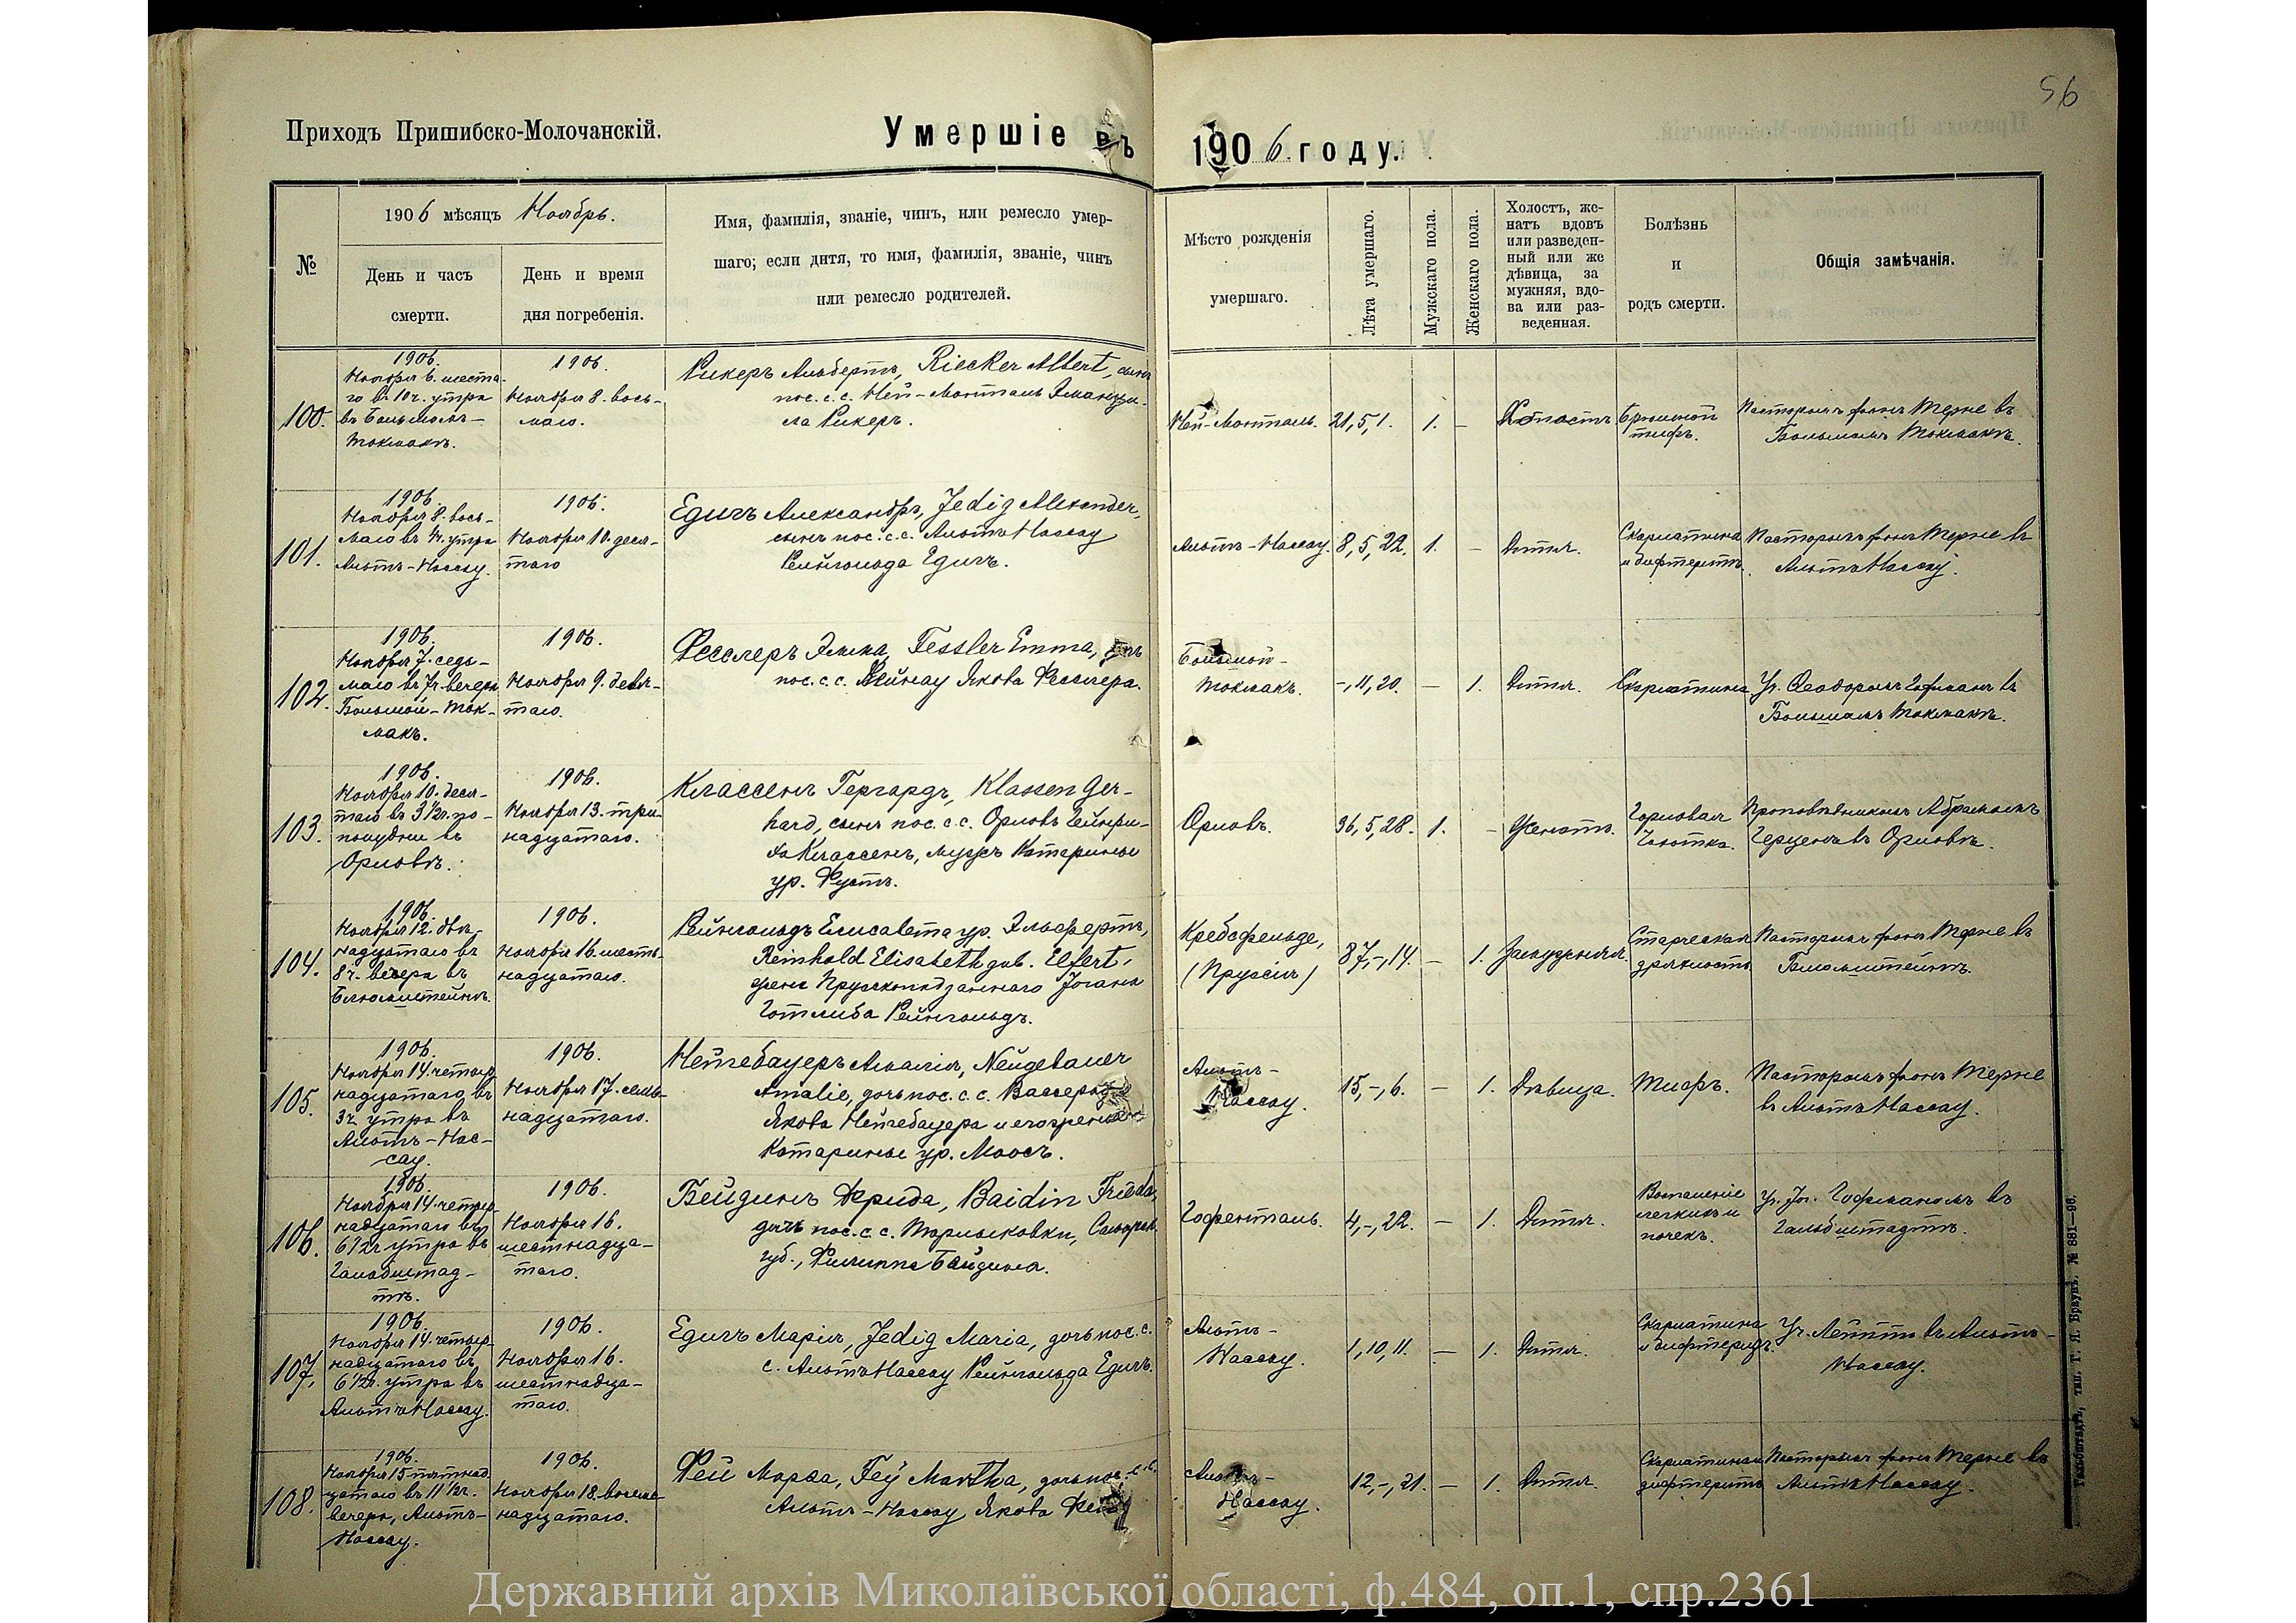 56
Приходъ Пришибско-Молочанскій.
Умершіе въ
1906 году.
№
1906 мѣсяцъ Ноябрь.
День и часъ
смерти.
День и время
дня погребенія.
Имя, фамилія, званіе, чинъ, или ремесло умер-
шаго; если дитя, то имя, фамилія, званіе, чинъ
или ремесло родителей.
Мѣсто рожденія
умершаго.
Лѣта умершаго.
Мужскаго пола.
Женскаго пола.
Холостъ, же-
натъ вдовъ
или разведен-
ный или же
дѣвица, за
мужняя, вдо-
ва или раз-
веденная.
Болѣзнь
и
родъ смерти.
Общія замѣчанія.
100.
1906.
Ноября 6. шеста-
го в. 10 ч. утра
въ Большомъ-
Токмакѣ.
1906.
Ноября 8. вось-
маго.
Рикеръ Альбертъ, Riecker Albert, сынъ
пос. с. с. Ней-Монталь Эмануи-
ла Рикеръ.
Ней-Монталь.
21, 5, 1.
1.
–
Холостъ
Брюшной
тифъ.
Пасторомъ фонъ Терне въ
Большомъ Токмакѣ.
101.
1906.
Ноября 8. вось-
маго въ 4. утра
Альтъ-Нассау.
1906.
Ноября 10. деся-
таго
Едигъ Александръ, Jedig Alexander,
сынъ пос. с. с. Альтъ Нассау
Рейнгольда Едигъ.
Альтъ-Нассау.
8, 5, 22.
1.
–
Дитя.
Скарлатина
и дифтеритъ.
Пасторомъ фонъ Терне въ
Альтъ Нассау.
102.
1906.
Ноября 7. седь-
маго въ 7 ч. вечера
Большой-Ток-
макъ.
1906.
Ноября 9. девя-
таго.
Фесслеръ Эмма, Fessler Emma, дочь
пос. с. с. Рейнау Якова Фесслера.
Большой-
Токмакъ.
–, 11, 20.
–
1.
Дитя.
Скарлатина
Уч. Теодоромъ Гофманъ въ
Большомъ Токмакѣ.
103.
1906.
Ноября 10. деся-
таго въ 3½ ч. по-
полудни въ
Орловѣ.
1906.
Ноября 13. три-
надцатаго.
Классенъ Гергардъ, Klassen Ger-
hard, сынъ пос. с. с. Орловъ Гейнри-
ха Классенъ, мужъ Катарины
ур. Фустъ.
Орловъ.
36, 5, 28.
1.
–
Женатъ.
Горловая
Чахотка.
Проповѣдникомъ Абрамомъ
Герценъ въ Орловѣ.
104.
1906.
Ноября 12. двѣ-
надцатаго въ
8 ч. вечера въ
Блюмштейнѣ.
1906.
Ноября 16. шест-
надцатаго.
Рейнгольдъ Елисавета ур. Эльфертъ,
Reinhold Elisabeth geb. Elfert,
жена Прусскоподданнаго Іоганна
Готлиба Рейнгольдъ.
Кребсфельде,
(Пруссія)
87, –, 14.
–
1.
Замужняя.
Старческая
дряхлость
Пасторомъ фонъ Терне въ
Блюмштейнѣ.
105.
1906.
Ноября 14. четыр-
надцатаго, въ
3 ч. утра въ
Альтъ-Нас-
сау.
1906.
Ноября 17. семь-
надцатаго.
Нейгебауеръ Амалія, Neugebauer
Amalie, дочь пос. с. с. Вассерау
Якова Нейгебауера и его жены
Катарины ур. Моосъ.
Альтъ-
Нассау.
15, –, 6.
–
1.
Дѣвица.
Тифъ.
Пасторомъ фонъ Терне
въ Альтъ Нассау.
106.
1906.
Ноября 14. четыр-
надцатаго въ
6½ ч утра въ
Гальбштад-
тѣ.
1906.
Ноября 16.
шестнадца-
таго.
Бейдинъ Фрида, Baidin Frieda,
дочь пос. с. с.
губ., Филиппа Бейдина.
Гофенталь.
4, –, 22.
–
1.
Дитя.
Воспаленіе
легкихъ и
почекъ.
Уч. Іог. Гофманомъ въ
Гальбштадтѣ.
107.
1906.
Ноября 14. четыр-
надцатаго въ
6½ ч. утра въ
Альтъ Нассау.
1906.
Ноября 16.
шестнадца-
таго.
Едигъ Марія, Jedig Maria, дочь пос. с.
с. Альтъ Нассау Рейнгольда Едигъ.
Альтъ-
Нассау.
1, 10, 11.
–
1.
Дитя.
Скарлатина
и дифтеритъ.
Уч. Леттъ въ Альтъ-
Нассау.
108.
1906.
Ноября 15 пятнад-
цатаго въ 11½ ч.
вечера, Альтъ-
Нассау.
1906.
Ноября 18. восем-
надцатаго.
Фей Марта, Feÿ Martha, дочь пос. с. с.
Альтъ-Нассау Якова Фей
Альтъ-
Нассау.
12, –, 21.
–
1.
Дитя.
Скарлатина и
дифтеритъ
Пасторомъ фонъ Терне въ
Альтъ Нассау.
Гальбштадтъ, тип. Г. Я. Браунъ. № 881—96.
Державний архів Миколаївської області, ф.484, оп.1, спр.2361